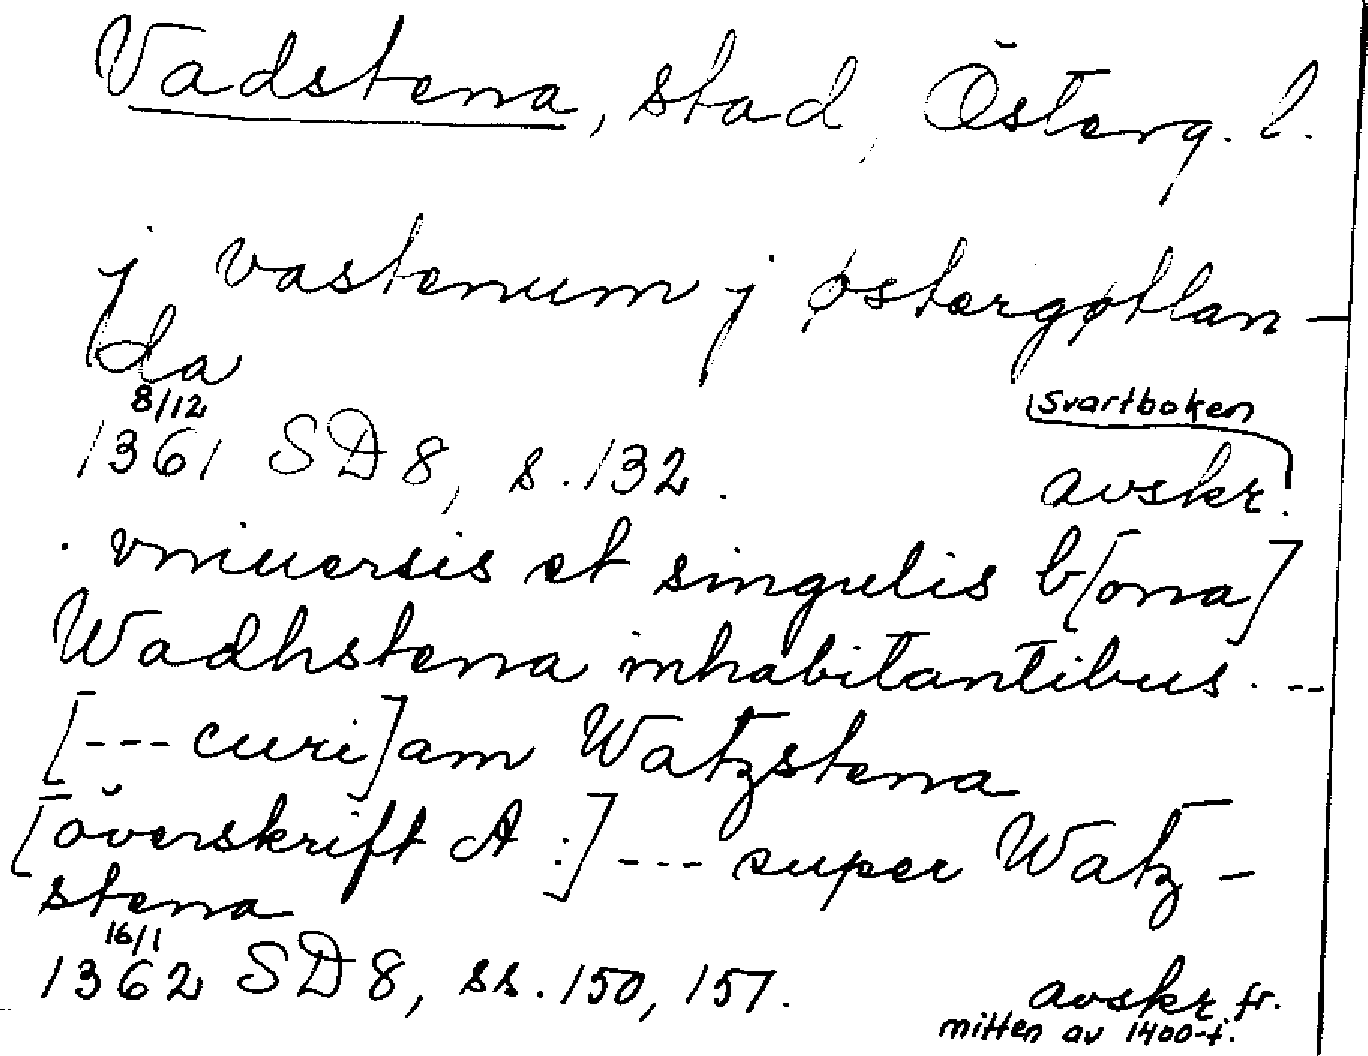 Vadstena, stad, Österg. l.
j vastenum j østergøtlan-
da
8/12
svartboken
1361 SD 8, s. 132. avskr.
. vniuersis et singulis b[ona]
Wadhstena inhabitantibus. --
[--- curi]am Watzstena
[överskrift A :] --- super Watz-
stena
16/1
1362 SD 8, ss. 150, 151. avskr. fr.
mitten av 1400-t.